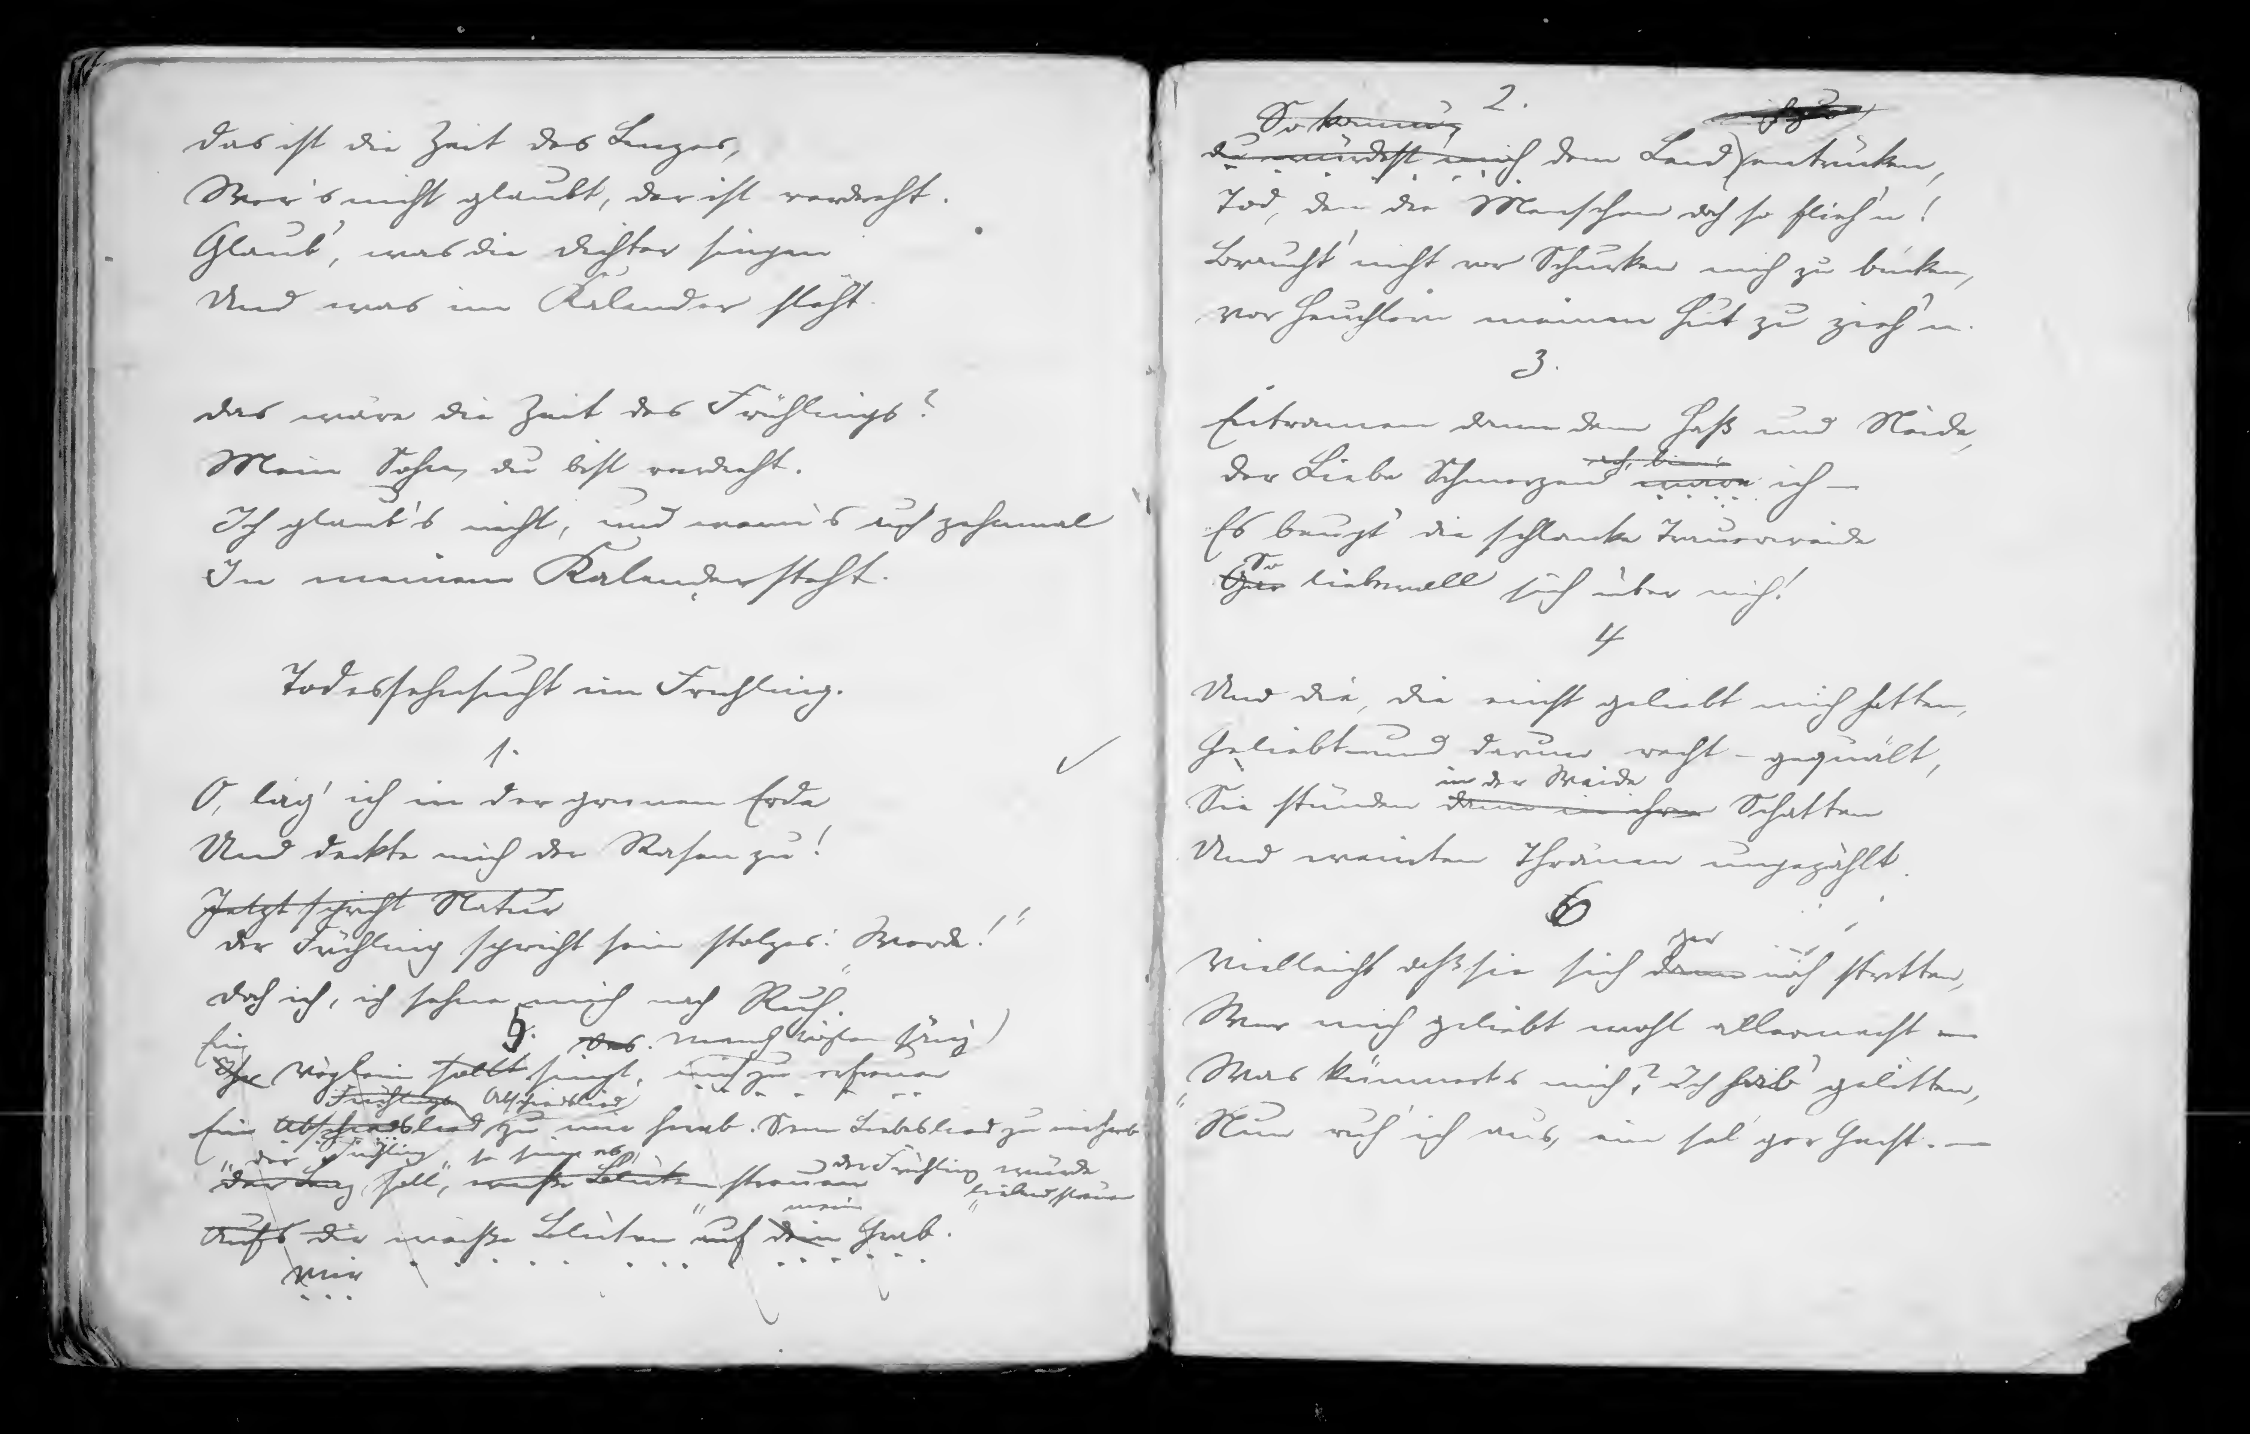 Das ist die Zeit des Lenzes,
Wer's nicht glaubt, der ist verdreht.
Glaub', was die Dichter singen
Und was im Kalender steht.
Das wäre die Zeit des Frühlings?
Mein Sohn, du bist verdreht.
Ich glaub's nicht, und wenn's auch zehnmal
In meinem Kalender steht.
Todessehnsucht im Frühling.
1.
O, läg' ich in der grünen Erde
Und deckte mich der Rasen zu!
Jetzt spricht Natur
Der Frühling spricht sein stolzes: „Werde!"
Doch ich, ich sehne mich nach Ruh.
5.
Ein Vöglein sollt singt, mich zu erfreuen
Frühlings Abschiedslied
Ein Abschiedslied zu mir herab. Sein Liebeslied zu mir herab
der Frühling
Der Lenz soll, weiße Blüten streuen der Frühling würde
mein
Aufs die weiße Blüten auf dein Grab.
mir
2.
So
du würdest mich dem Leid entrücken,
Tod, den die Menschen doch so flieh'n!
Braucht' nicht vor Schurken mich zu bücken,
Vor Heuchlern meinen Hut zu zieh'n.
3.
Entronnen dann dem Haß und Neide,
Der Liebe Schmerzen wäre ich —
Es beugt' die schlanke Trauerweide
So
Gar liebevoll sich über mich!
4
Und die, die einst geliebt mich hatten,
Geliebt und darum recht – gequält,
in der Weide
Sie stünden dann in ihrem Schatten
Und weinten Thränen ungezählt.
6
gar
Vielleicht daß sie sich dann noch stritten,
Wer mich geliebt wohl allermeist —
„Was kümmerts mich? Ich hab' gelitten,
„Nun ruh' ich aus, ein sel'ger Geist. —